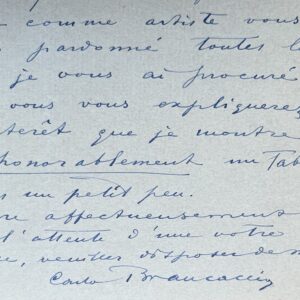 comme artiste vous
pardonné toutes l
je vous ai procuré
vous vous expliquerez
terêt que je montre
honorablement un Tab
un petit peu.
re affectueusement
l'attente d'une votre
, veuillez disposer de
Carlo Brancaccio